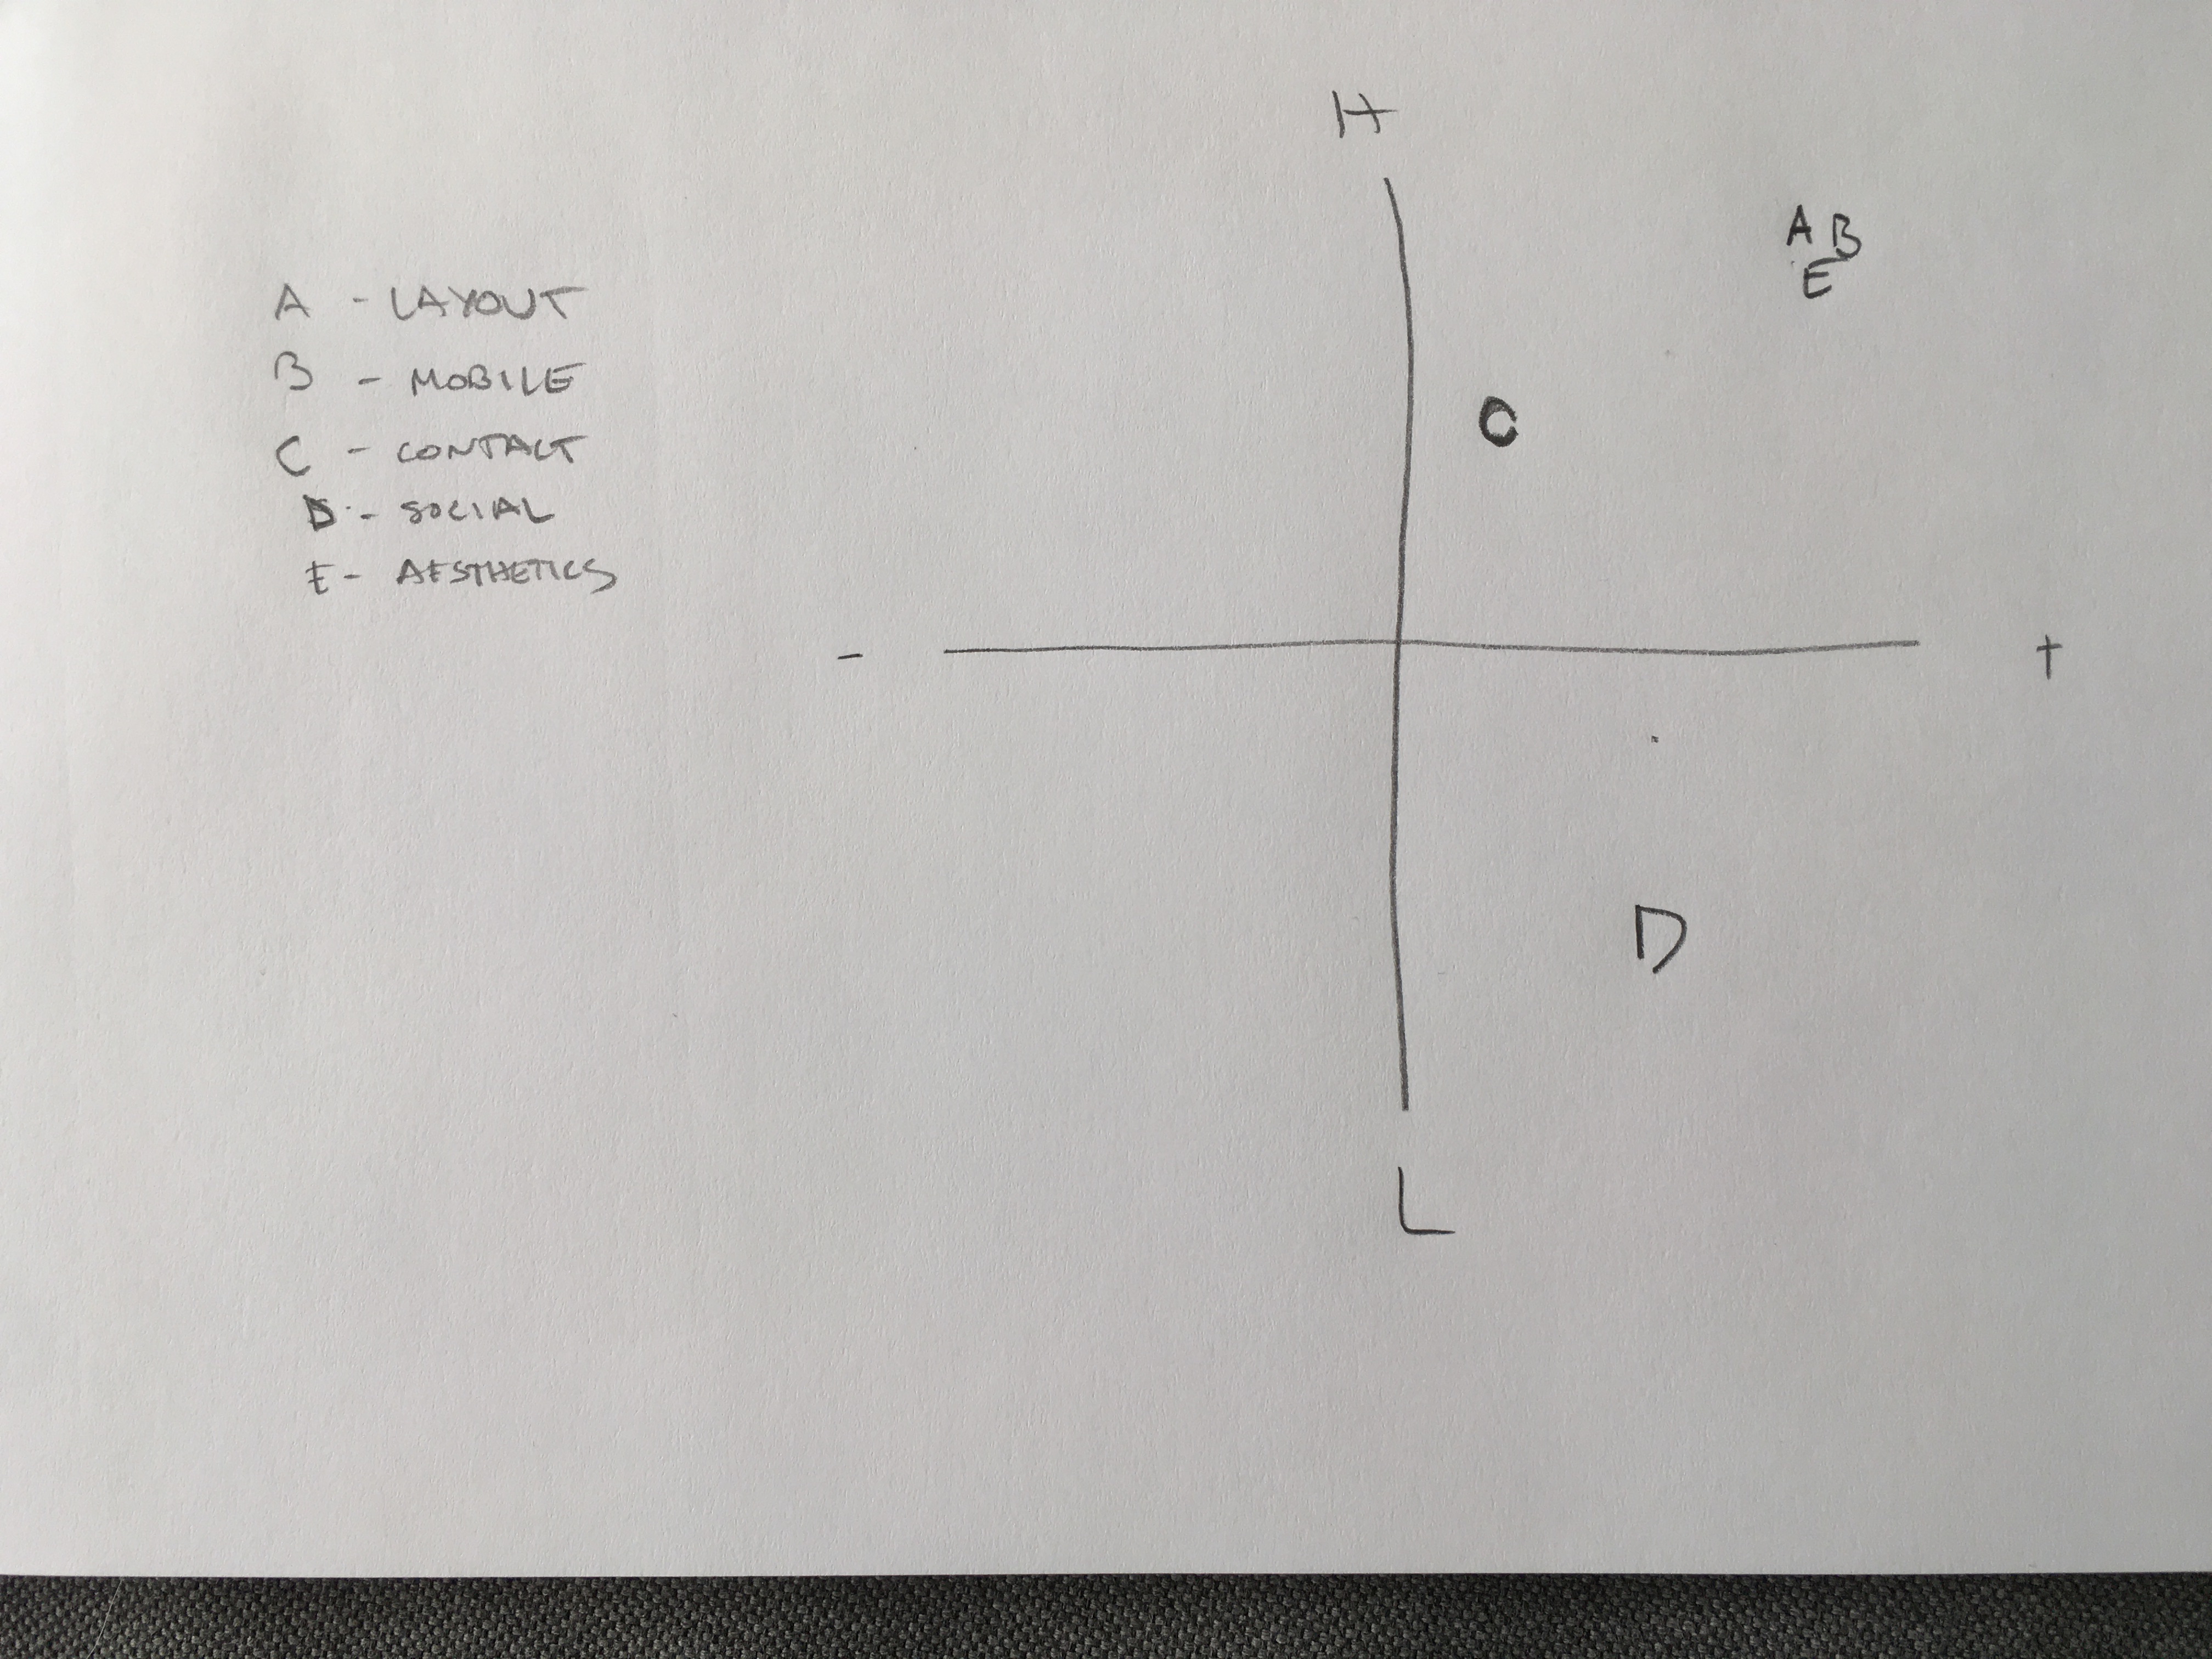 A - LAYOUT
B - MOBILE
C - CONTACT
D - SOCIAL
E - AESTHETICS
H
A B
E
C
- +
D
L